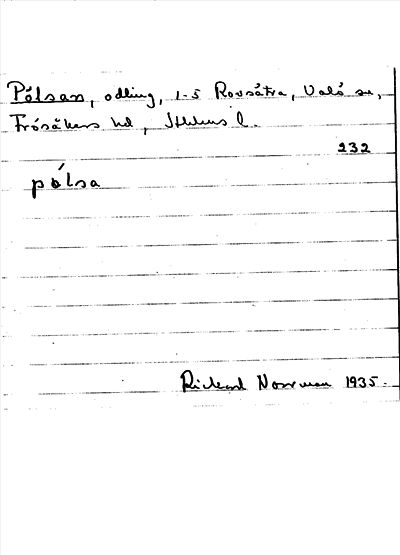 Pålsan, odling, 1-5 Rovsätra, Valö sn,
Frösåkers hd, Sthlms l.
232
pålsa
Rickard Norrman 1935.